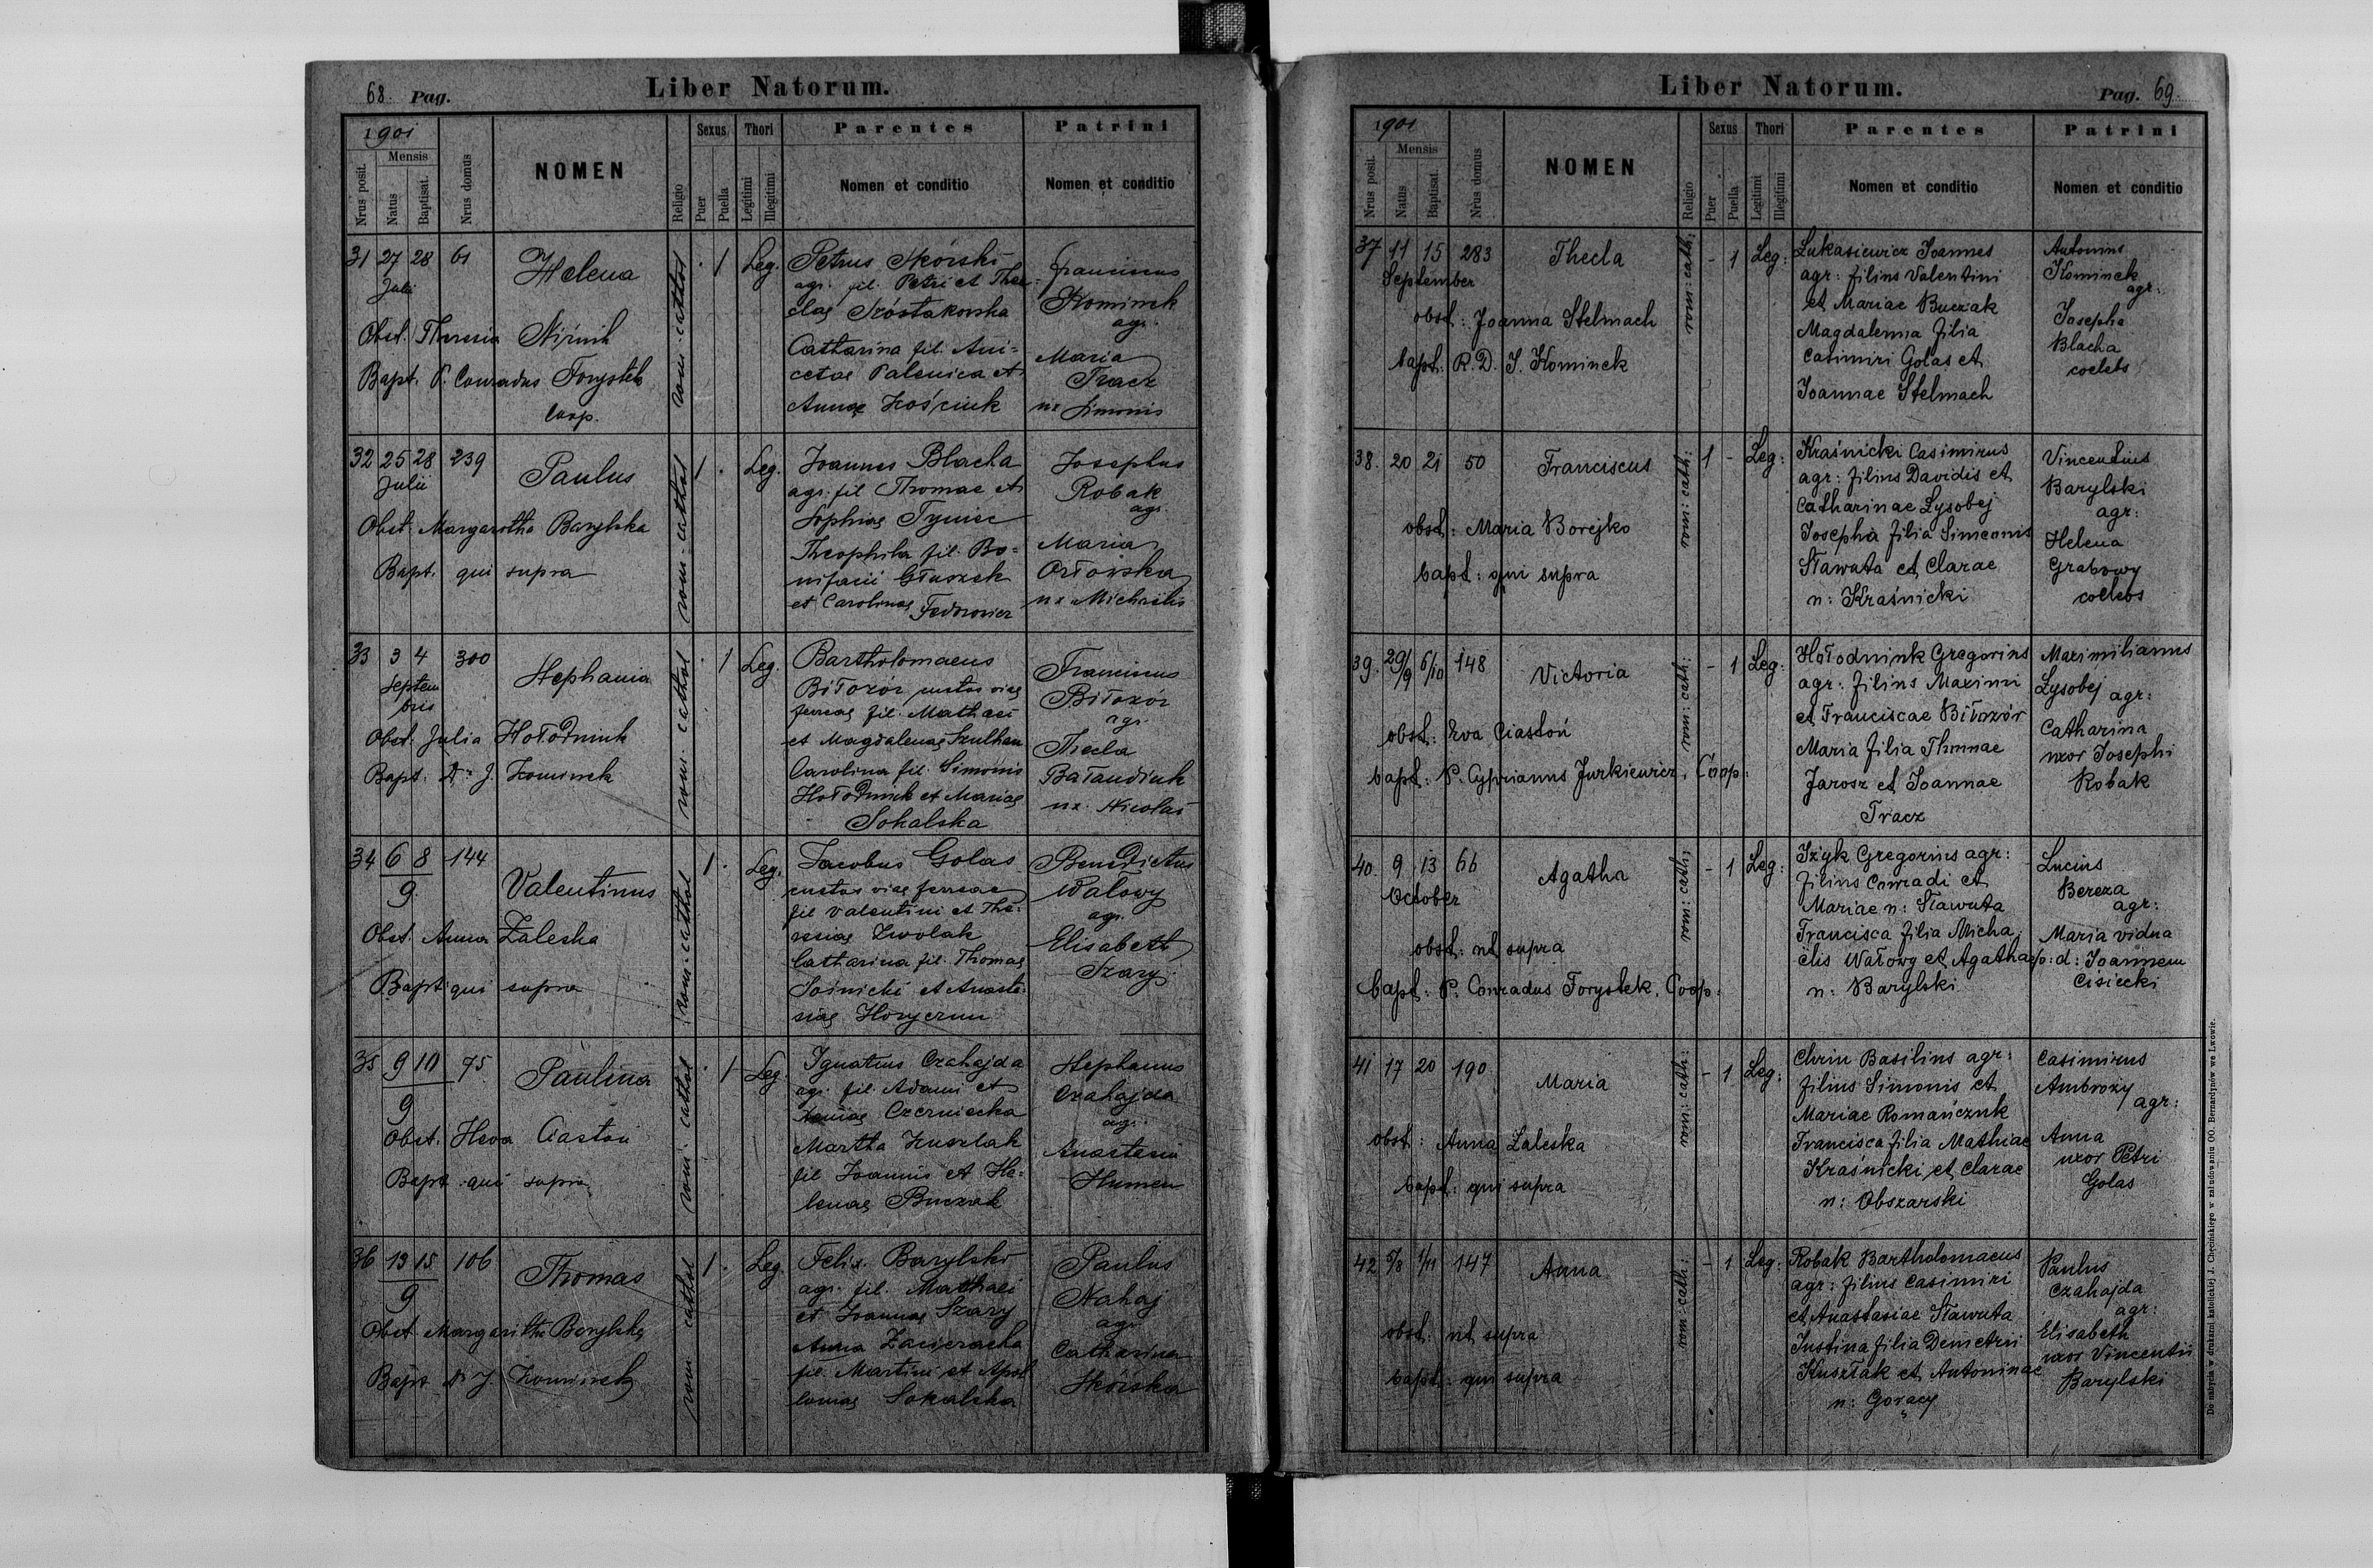 68. Pag.
Liber Natorum.
1901
Nrus posit.
Mensis
Natus
Baptisat.
Nrus domus
NOMEN
Religio
Sexus
Puer
Puella
Thori
Legitimi
Illegitimi
Parentes
Nomen et conditio
Patrini
Nomen et conditio
31 27 28 61
Julii
Helena
Obst. Theresia
Bapt. P. Conradus Forystek
Coop.
rom. cathol
1 Leg.
Petrus Skórski
agr. fil. Petri et The=
clae Szóstakowska
Catharina fil. Ani=
cetae Palenica et
Annae Kościuk
Franciscus
Kominek
agr.
Maria
Tracz
ux Simonis
32 25 28 239
Julii
Paulus
Obst. Margaretha Barylska
Bapt. qui supra
rom. cathol
1 . Leg.
Joannes Blacha
agr. fil Thomae et
Sophiae Tyniec
Theophila fil. Bo=
nifacii Głuszek
et Carolinae
Josephus
Robak
agr.
Maria
Orłowska
ux Michaelis
33 3 4 300
Septem
bris
Stephania
Obst. Julia Hołodniuk
Bapt. J. Kominek
rom. cathol
. 1 Leg.
Bartholomaeus
Biłozór custos viae
ferreae fil. Mathaei
et Magdalenae
Carolina fil. Simonis
Hołodniuk et Mariae
Sokalska
Franciscus
Biłozór
agr.
Thecla
Bałandiuk
ux. Nicolai
34 6 8 144
9
Valentinus
Obst. Anna Zaleska
Bapt qui supra
rom. cathol
1 . Leg.
Jacobus Golas
custos viae ferreae
fil Valentini et The=
resiae Zwolak
Catharina fil. Thomae
et Anasta=
siae
Benedictus
Wałowy
agr.
Elisabeth
Szary
35 9 10 75
9
Paulina
Obst. Heva Ciastoń
Bapt qui supra
rom. cathol
. 1 Leg.
Ignatius Czahajda
agr. fil. Adami et
Czerniecka
Martha Kuszlak
fil Joannis et He=
lenae Buczak
Stephanus
Czahajda
agr.
Anastasia
Humen
36 13 15 106
9
Thomas
Obst Margaritha Barylska
Bapt J. Kominek
rom cathol
1 . Leg
Felix Barylski
agr. fil. Mathaei
et Joannae Szary
Anna Zawieracha
fil. Martini et Apol
loniae Sokalska
Paulus
Nahaj
agr.
Catharina
Skórska
Liber Natorum.
Pag. 69
1901
Nrus posit.
Mensis
Natus
Baptisat.
Nrus domus
NOMEN
Religio
Sexus
Puer
Puella
Thori
Legitimi
Illegitimi
Parentes
Nomen et conditio
Patrini
Nomen et conditio
37 11 15 283
September
Thecla
obst: Joanna Stelmach
bapt: R. D. J. Kominek
rom: cath:
- 1 Leg:
Lukasiewicz Joannes
agr: filius Valentini
et Mariae Buczak
Magdalenna filia
Casimiri Golas et
Joannae Stelmach
Antonius
Kominek
agr:
Josepha
Blacha
coelebs
38. 20 21 50
Franciscus
obst: Maria Borejko
bapt: qui supra
rom: cath:
1 - Leg:
Kraśnicki Casimirus
agr: filius Davidis et
Catharinae Łysobej
Josepha filia Simeonis
Sławuta et Clarae
n: Kraśnicki
Vincentius
Barylski
agr:
Helena
Grabowy
coelebs
39. 29/9 6/10 148
Victoria
obst: Eva Ciastoń
bapt: P. Cyprianus Jurkiewicz, Coop:
rom: cath:
- 1 Leg:
Hołodniuk Gregorius
agr: filius Maximi
et Franciscae Biłozór
Maria filia Thomae
Jarosz et Joannae
Tracz
Maximilianus
Łysobej agr:
Catharina
uxor Josephi
Robak
40. 9 13 66
October
Agatha
obst: ut supra
bapt: P. Conradus Forystek, Coop:
rom: cath:
- 1 Leg:
Iżyk Gregorius agr:
filius Conradi et
Mariae n: Sławuta
Francisca filia Micha
elis Wałowy et Agathae
n: Barylski
Lucius
Bereza
agr:
Maria vidua
p: d: Joannem
Cisiecki
41 17 20 190
Maria
obst: Anna Zaleska
bapt: qui supra
rom: cath:
- 1 Leg:
Chrin Basilius agr:
filius Simonis et
Mariae Romańczuk
Francisca filia Mathiae
Kraśnicki et Clarae
n: Obszarski
Casimirus
Ambrozy
agr:
Anna
uxor Petri
Golas
42 1/11 147
Anna
obst: ut supra
bapt: qui supra
rom: cath:
- 1 Leg:
Robak Bartholomaeus
agr: filius Casimiri
et Anastasiae Sławuta
Justina filia Demetrii
Kuszłak et Antoninae
n: Gorący
Paulus
Czahajda
agr:
Elisabeth
uxor Vincentii
Barylski
Do nabycia w drukarni katolickiej J. Chęcińskiego w zabudowaniu OO. Bernardynów we Lwowie.